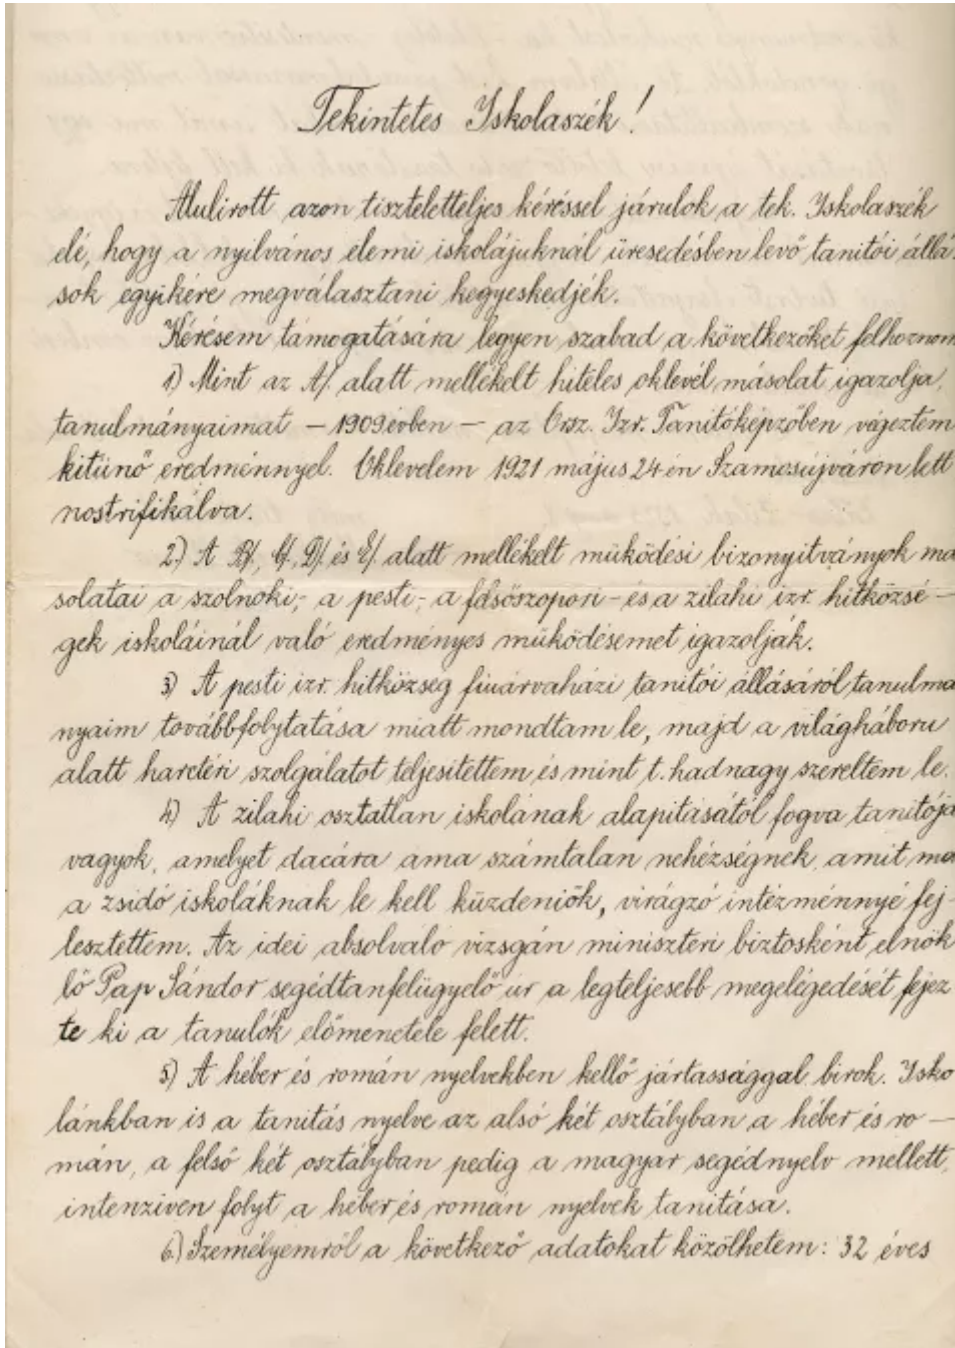 Tekintetes Iskolaszék!
Alulirott azon tiszteletteljes kéréssel járulok a tek. Iskolaszék
elé, hogy a nyilvános elemi iskolájuknál üresedésben levő tanitói állá-
sok egyikére megválasztani kegyeskedjék.
Kérésem támogatására legyen szabad a következőket felhoznom
1.) Mint az A/. alatt mellékelt hiteles oklevél másolat igazolja,
tanulmányaimat – 1909 évben – az Orsz. Izr. Tanitóképzőben végeztem
kitünő eredménnyel. Oklevelem 1921 május 24 én Szamosújváron lett
nostrifikálva.
2.) A B/., C/., D/. és E/. alatt mellékelt müködési bizonyitványok má
solatai a szolnoki,- a pesti,- a felsőszopori - és a zilahi izr. hitközsé –
gek iskoláinál való eredményes müködésemet igazolják.
3) A pesti izr. hitközség fiuárvaházi tanitói állásáról tanulmá
nyaim továbbfolytatása miatt mondtam le, majd a világháboru
alatt harctéri szolgálatot teljesitettem és mint t. hadnagy szereltem le.
4) A zilahi osztatlan iskolának alapitásától fogva tanitója
vagyok, amelyet dacára ama számtalan nehézségnek, amit ma
a zsidó iskoláknak le kell küzdeniök, virágzó intézménnyé fej-
lesztettem. Az idei absolváló vizsgán miniszteri biztosként elnök
lő Pap Sándor segédtanfelügyelő úr a legteljesebb megelégedését fejez
te ki a tanulók előmenetele felett.
5) A héber és román nyelvekben kellő jártassággal birok. Isko
lánkban is a tanitás nyelve az alsó két osztályban a héber és ro –
mán, a felső két osztályban pedig a magyar segédnyelv mellett,
intenziven folyt a héber és román nyelvek tanitása.
6.) Személyemről a következő adatokat közölhetem: 32 éves